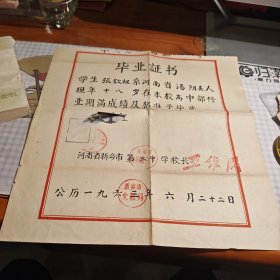 毕业证书
学生张钦祖系河南省汤阴县人
现年十八岁在本校高中部修
业期满成绩及格准予毕业
河南省新乡市第 中学校长
公历一九六三年六月二十二日
归